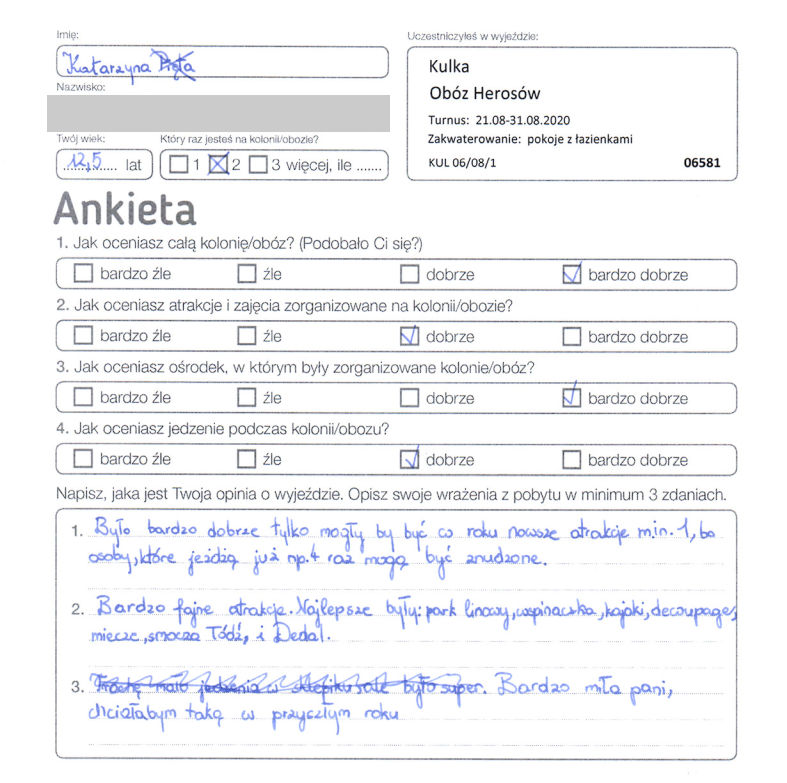 Imię:
Katarzyna
Nazwisko:
Twój wiek:
12,5 lat
Który raz jesteś na kolonii/obozie?
1 2 3 więcej, ile .......
Uczestniczyłeś w wyjeździe:
Kulka
Obóz Herosów
Turnus: 21.08-31.08.2020
Zakwaterowanie: pokoje z łazienkami
KUL 06/08/1 06581
Ankieta
1. Jak oceniasz całą kolonię/obóz? (Podobało Ci się?)
bardzo źle źle dobrze bardzo dobrze
2. Jak oceniasz atrakcje i zajęcia zorganizowane na kolonii/obozie?
bardzo źle źle dobrze bardzo dobrze
3. Jak oceniasz ośrodek, w którym były zorganizowane kolonie/obóz?
bardzo źle źle dobrze bardzo dobrze
4. Jak oceniasz jedzenie podczas kolonii/obozu?
bardzo źle źle dobrze bardzo dobrze
Napisz, jaka jest Twoja opinia o wyjeździe. Opisz swoje wrażenia z pobytu w minimum 3 zdaniach.
1. Było bardzo dobrze tylko mogły by być co roku nowsze atrakcje m.in. 1, bo
osoby, które jeżdżą już np. 4 raz mogą być znudzone.
2. Bardzo fajne atrakcje. Najlepsze były: park linowy, wspinaczka, kajaki, decoupage,
miecze, smocza łódź, i Dedal.
3. Trochę mało jedzenia w sklepiku ale było super. Bardzo miła pani,
chciałabym taką w przyszłym roku